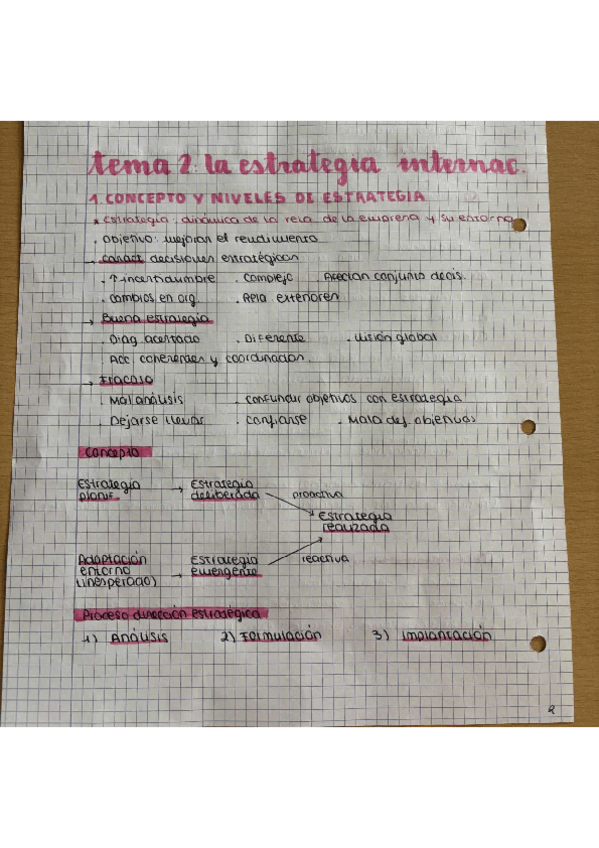 tema 2. la estrategia internac.
1. CONCEPTO Y NIVELES DE ESTRATEGIA
* Estrategia: dinámica de la rela. de la empresa y su entorno
. Objetivo: mejorar el rendimiento
→ Caract. decisiones estratégicas
. ↑ incertidumbre . Complejo . Afectan conjunto decis.
. cambios en org. . Rela exteriores
→ Buena estrategia
. Diag. acertado . Diferente . Visión global
. Acc. coherentes y coordinación.
→ Fracaso
. Mal análisis . Confundir objetivos con estrategia
. Dejarse llevar . Confiarse . Mala def. objetivos
Concepto
Estrategia planif. → Estrategia deliberada proactiva
Estrategia realizada
Adaptación entorno (inesperado) → Estrategia emergente reactiva
Proceso dirección estratégica
1) Análisis 2) Formulación 3) Implantación
2